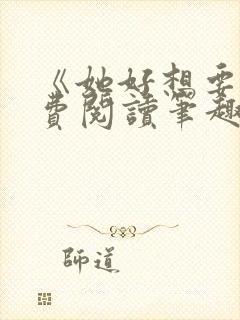 《她好想要
費閱讀筆趣
師道